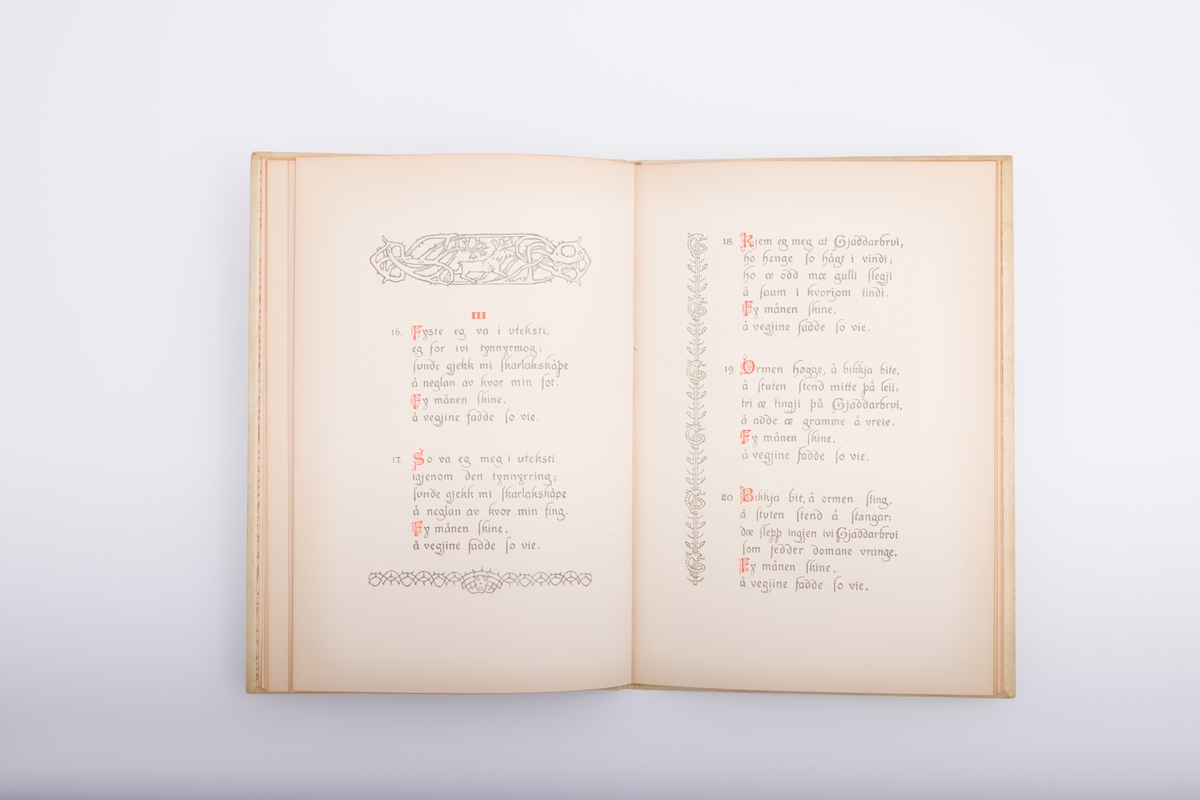 III
16. Fyste eg va i uteksti,
eg for ivi tynnyrmog;
sunde gjekk mi skarlakskåpe
å neglan av kvor min fot.
Fy månen skine.
å vegjine fadde so vie.
17. So va eg meg i uteksti
igjenom den tynnyrring;
sunde gjekk mi skarlakskåpe
å neglan av kvor min fing.
Fy månen skine,
å vegjine fadde so vie.
18. Kjem eg meg at Gjaddarbrui,
ho henge so høgt i vindi;
ho æ odd mæ gulli slegji
å saum i kvorjom tindi.
Fy månen skine.
å vegjine fadde so vie.
19. Ormen høgge, å bikkja bite,
å stuten stend mitte på leii,
tri æ tingji på Gjaddarbrui,
å adde æ gramme å vreie.
Fy månen skine.
å vegjine fadde so vie.
20 Bikkja bit, å ormen sting,
å stuten stend å stangar:
dæ slepp ingjen ivi Gjaddarbrui
som fedder domane vrange.
Fy månen skine,
å vegjine fadde so vie.